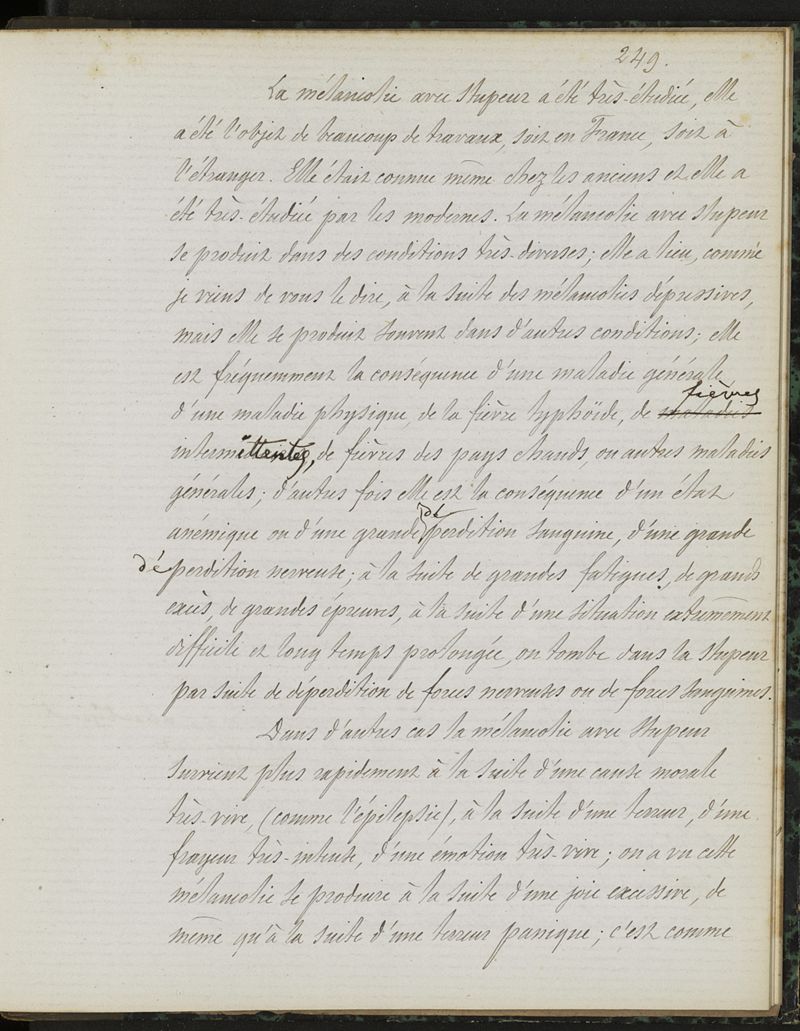 249.
La mélancolie avec stupeur a été très-étudiée, elle
a été l'objet de beaucoup de travaux, soit en France, soit à
l'étranger. Elle était connue même chez les anciens et elle a
été très-étudiée par les modernes. La mélancolie avec stupeur
se produit dans des conditions très-diverses; elle a lieu, comme
je viens de vous le dire, à la suite des mélancolies dépressives,
mais elle se produit souvent dans d'autres conditions; elle
est fréquemment la conséquence d'une maladie générale
d'une maladie physique, de la fièvre typhoïde, de maladies fièvres
intermittentes, de fièvres des pays chauds, ou autres maladies
générales; d'autres fois elle est la conséquence d'un état
anémique ou d'une grande dé perdition sanguine, d'une grande
dé perdition nerveuse; à la suite de grandes fatigues, de grands
excès, de grandes épreuves, à la suite d'une situation extrêmement
difficile et long temps prolongée, on tombe dans la stupeur
par suite de déperdition de forces nerveuses ou de forces sanguines.
Dans d'autres cas la mélancolie avec stupeur
survient plus rapidement à la suite d'une cause morale
très-vive, (comme l'épilepsie), à la suite d'une terreur, d'une
frayeur très-intense, d'une émotion très-vive; on a vu cette
mélancolie se produire à la suite d'une joie excessive, de
même qu'à la suite d'une terreur panique; c'est comme